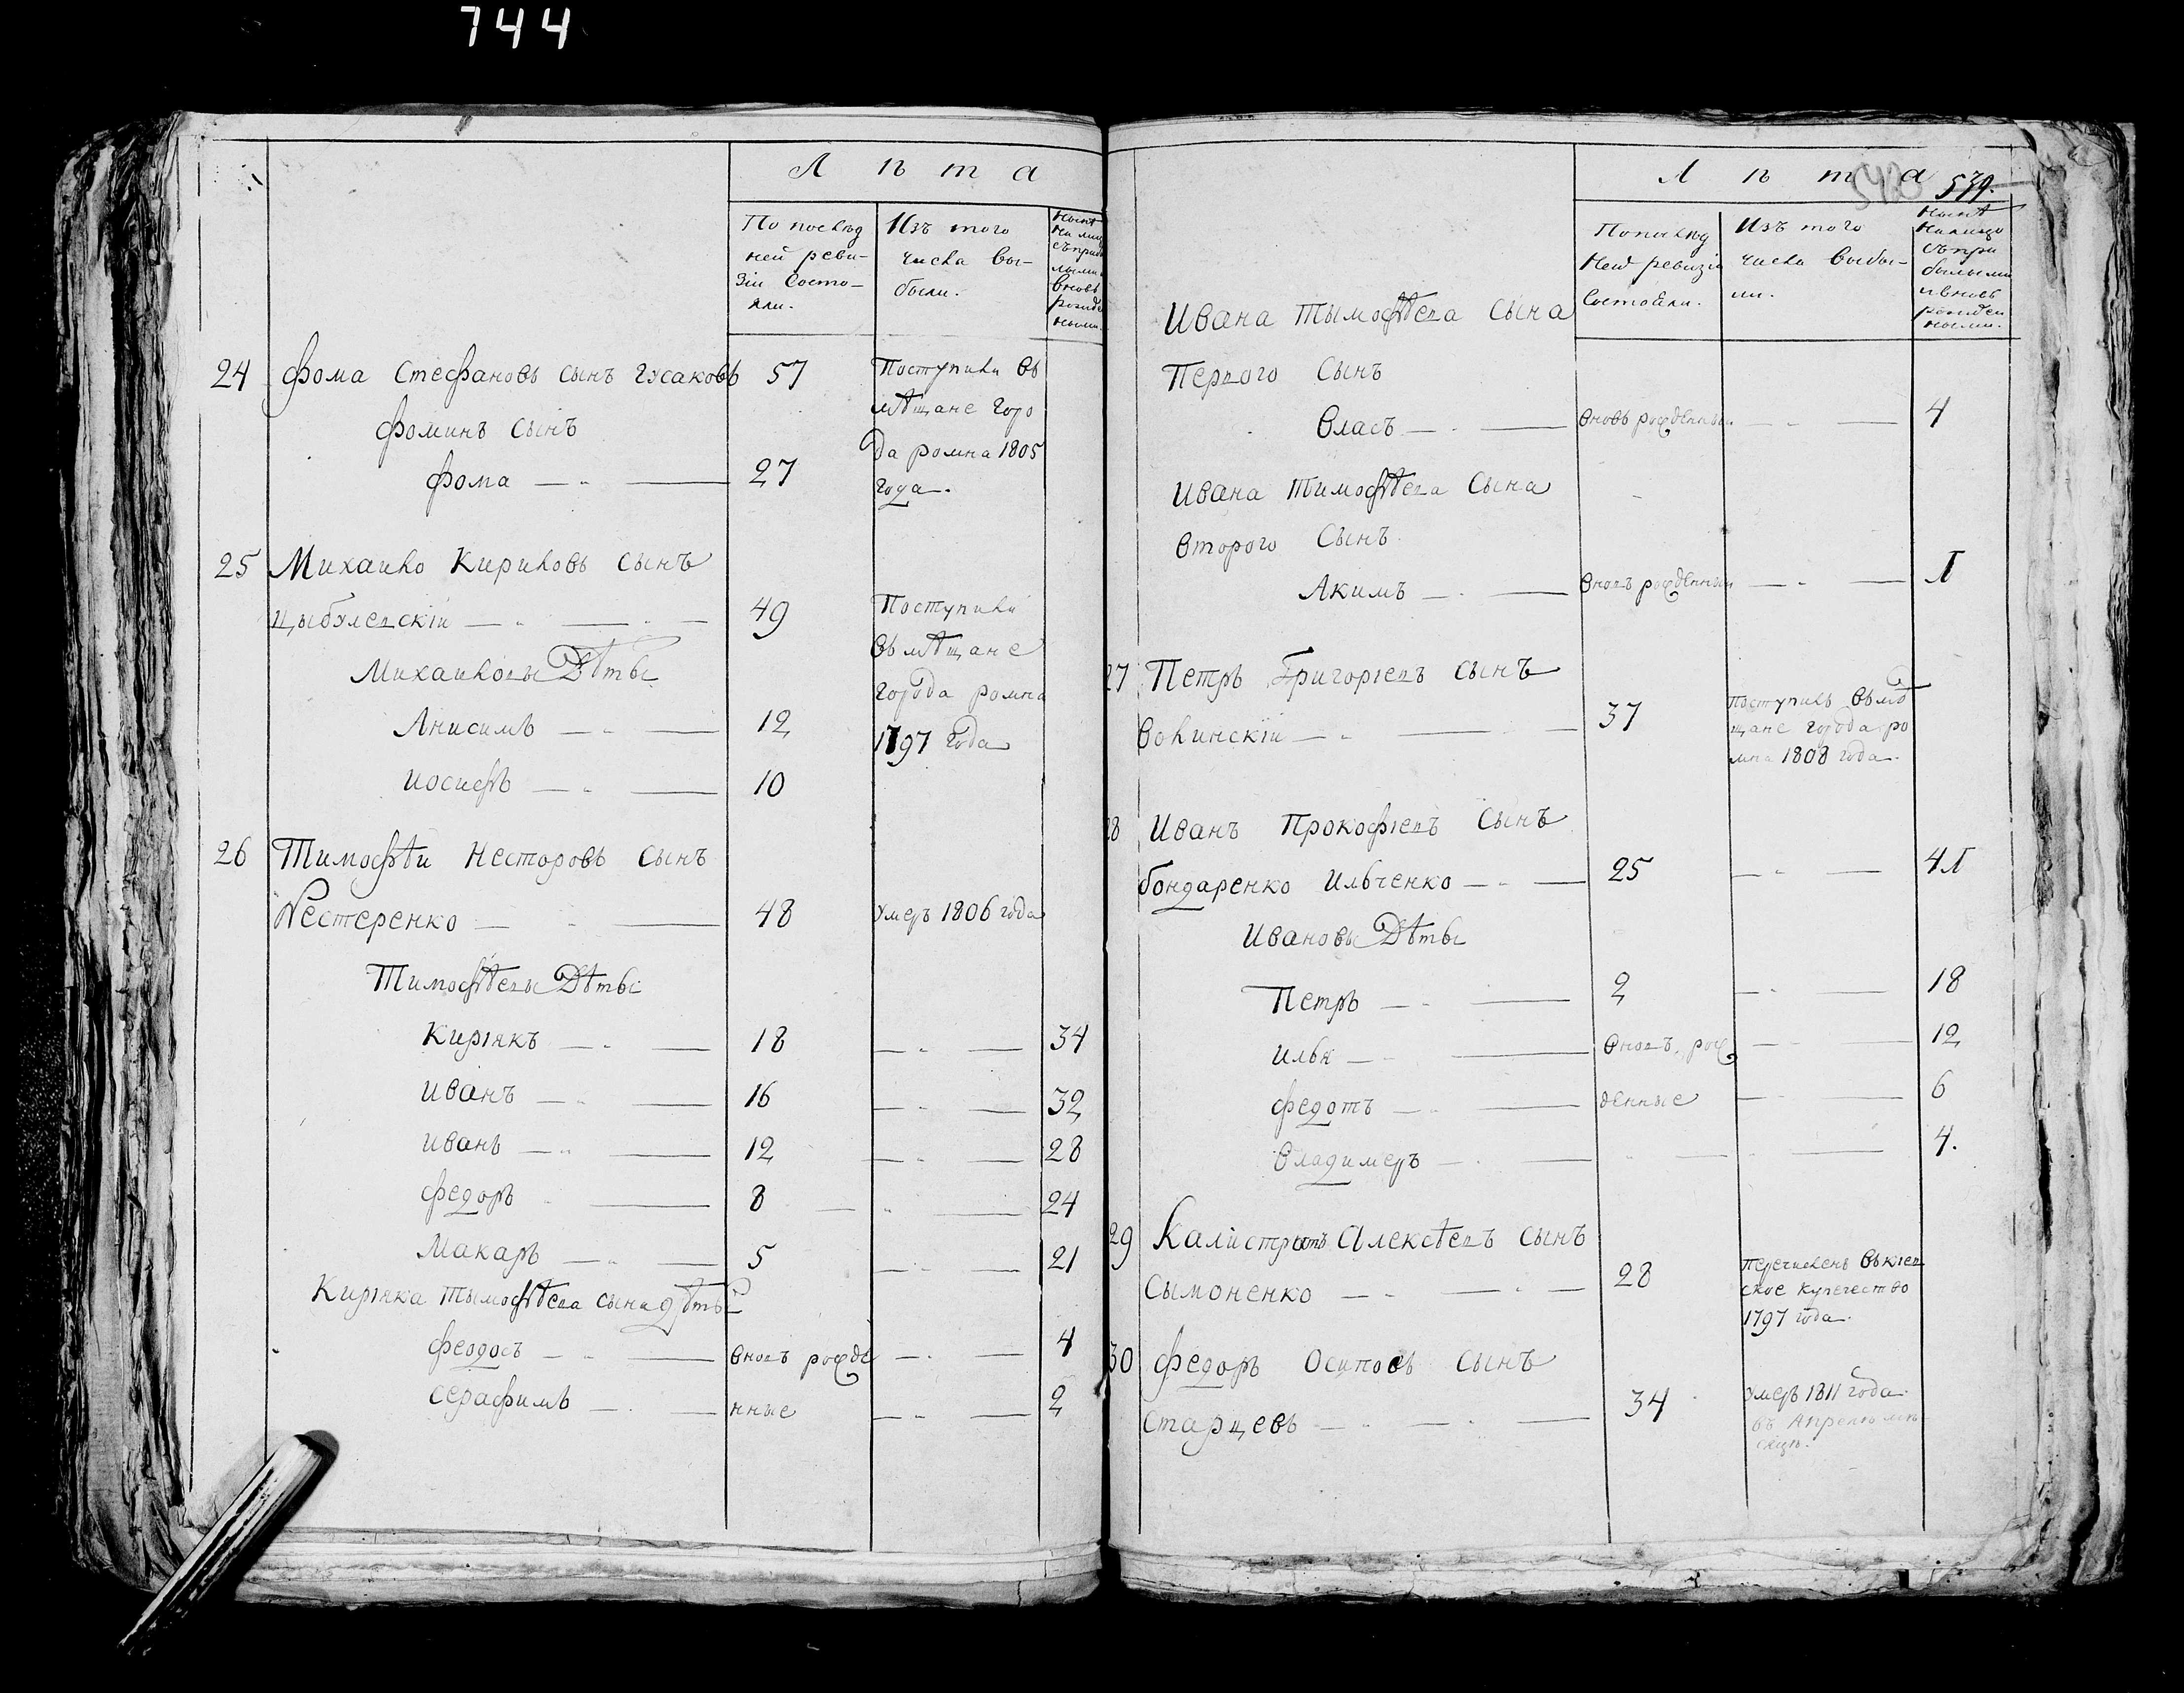 744
Лѣта
По послѣд
ней реви-
зіи Состо-
яли.
Изъ того
числа вы-
были.
24 Фома Стефановъ сынъ Гусаковъ 57 Поступили въ
мѣщане горо
Фоминъ сынъ
да ромна 1805
Фома — 27
года.
25 Михайло Кириловъ сынъ
Цыбулевскій — 49 Поступили
въ мѣщане
Михайловы Дѣты
города ромна
Анисимъ — 12
1797 года
Иосифъ — 10
26 Тимофѣи Несторовъ сынъ
Нестеренко — 48 умеръ 1806 года
Тимофѣевы Дѣты
Киріякъ — 18 — 34
Иванъ — 16 — 32
Иванъ — 12 — 28
Федоръ — 8 — 24
Макаръ — 5 — 21
Киріяка Тымофѣева сына дѣты
Феодосъ — вновь рожде — 4
Серафимъ — нные — 2
Лѣта
539.
По послѣд
ней ревизіи
Состояли.
Изъ того
числа выбы-
ли.
Нынѣ
налицо
съ при
былыми
и вновь
рожден
ными.
Ивана Тымофѣева Сына
Первого Сынъ
Власъ — вновь рожденный — 4
Ивана Тимофѣева Сына
Второго Сынъ
Акимъ — вновь рожденный —
27 Петръ Григоріевъ сынъ
Волинскій — 37 Поступилъ въ мѣ
щане города ро
мна 1808 года.
28 Иванъ Прокофіевъ Сынъ
бондаренко Ильченко — 25 —
Ивановы Дѣты
Петръ — 2 — 18
Илья — вновь рож — 12
Федотъ — денные — 6
Владимеръ — 4.
29 Калистратъ Алексѣевъ сынъ
Сымоненко — 28 Перечисленъ въ кіев
ское купечество
1797 года.
30 Федоръ Осиповъ сынъ
Старцевъ — 34 умеръ 1811 года
въ Апрелѣ мѣ
сяцѣ.